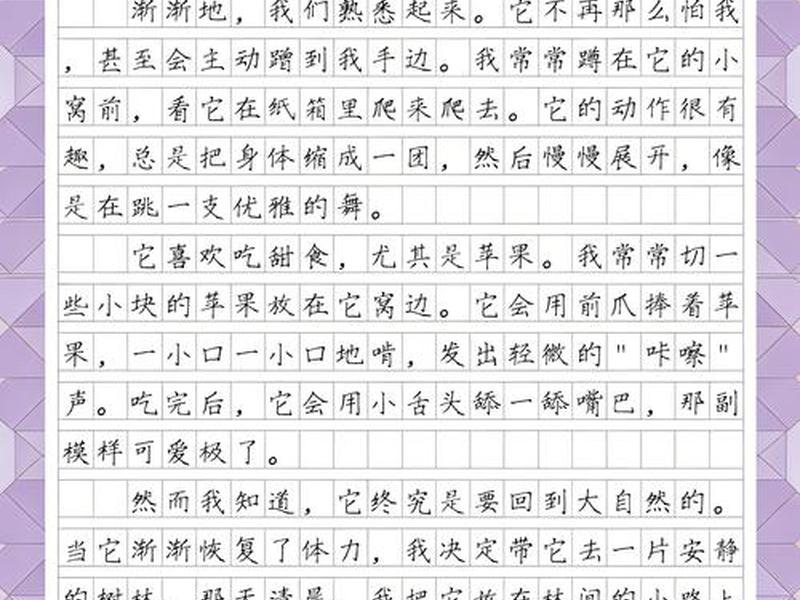 渐渐地，我们熟悉起来。它不再那么怕我
，甚至会主动蹭到我手边。我常常蹲在它的小
窝前，看它在纸箱里爬来爬去。它的动作很有
趣，总是把身体缩成一团，然后慢慢展开，像
是在跳一支优雅的舞。
它喜欢吃甜食，尤其是苹果。我常常切一
些小块的苹果放在它窝边。它会用前爪捧着苹
果，一小口一小口地啃，发出轻微的"咔嚓"
声。吃完后，它会用小舌头舔一舔嘴巴，那副
模样可爱极了。
然而我知道，它终究是要回到大自然的。
当它渐渐恢复了体力，我决定带它去一片安静
的树林。那天清晨，我把它放在林间的小路上